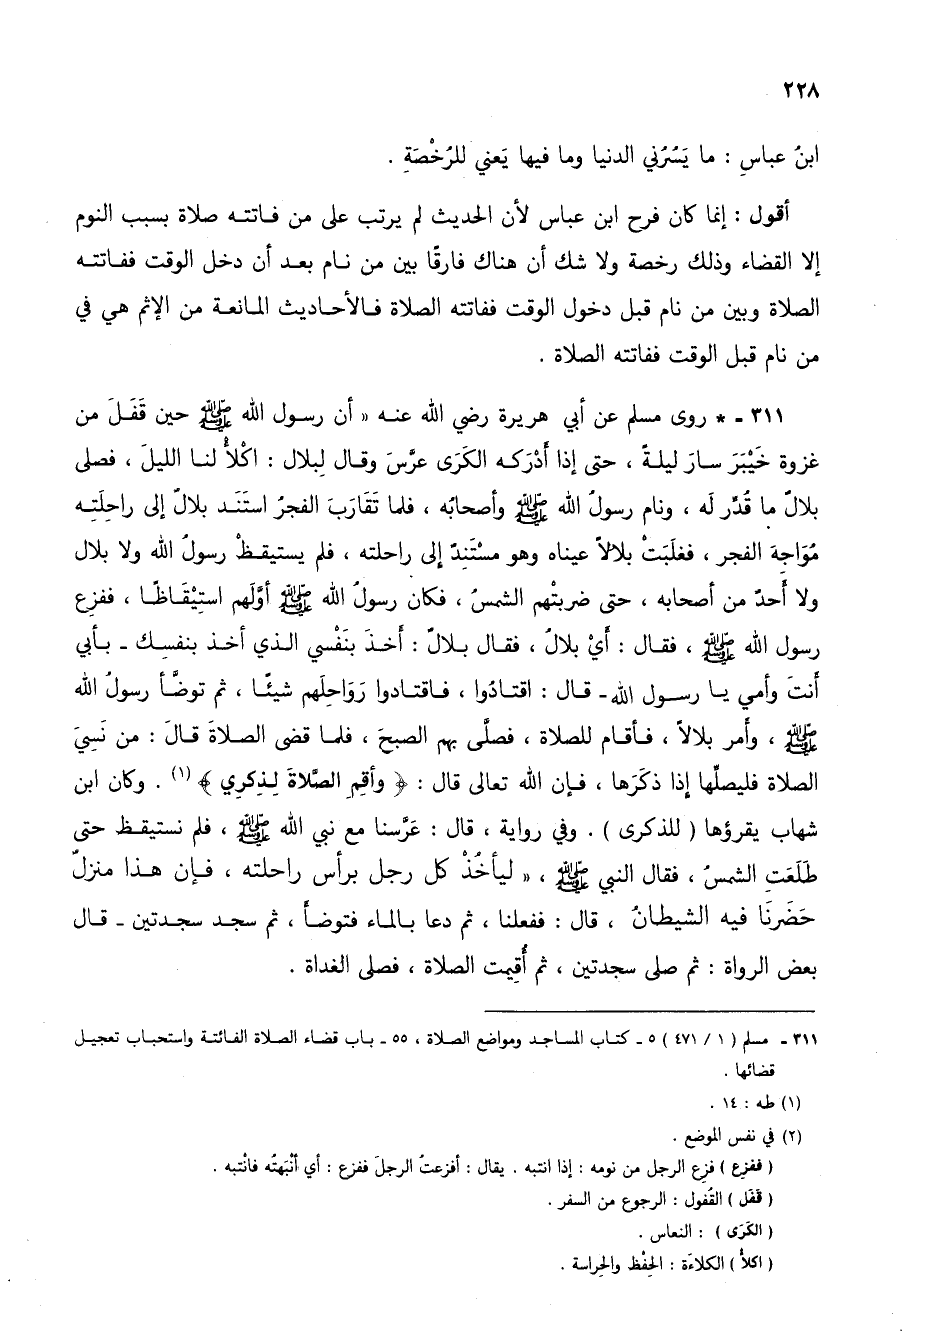 ٢٢٨
ابنُ عباسٍ : ما يَسُرُني الدنيا وما فيها يَعني للرُخْصَةِ .
أقول : إنما كان فرح ابن عباس لأن الحديث لم يرتب على من فـاتتـه صلاة بسبب النوم
إلا القضاء وذلك رخصة ولا شك أن هناك فارقًا بين من نـام بعـد أن دخل الوقت ففـاتتـه
الصلاة وبين من نام قبل دخول الوقت ففاتته الصلاة فـالأحـاديث المـانعـة من الإثم هي في
من نام قبل الوقت ففاتته الصلاة .
٣١١ ـ * روى مسلم عن أبي هريرة رضي الله عنـه « أن رسـول الله ﷺ حين قَفَـلَ من
غزوة خَيْبَرَ سـارَ ليلـةً ، حتى إذا أَدْرَكـه الكَرَى عرَّسَ وقـال لبِلال : اكْلأْ لنـا الليلَ ، فصلى
بلالٌ ما قُدِّر لَه ، ونام رسولُ الله ﷺ وأصحابُه ، فلما تَقَارَبَ الفجرُ استَنَـد بلالٌ إلى راحِلَتِـه
مُوَاجِهَ الفجر ، فغلَبَتْ بلالاً عيناه وهو مسْتَنِدٌ إلى راحلته ، فلم يستيقـظْ رسولُ الله ولا بلال
ولا أَحدٌ من أصحابه ، حتى ضربتْهم الشمسُ ، فكان رسولُ الله ﷺ أوَّلَهم استِيْقَـاظًـا ، ففزِع
رسول الله ﷺ ، فقـال : أَيْ بلالُ ، فقـال بـلالٌ : أَخـذَ بنَفْسي الـذي أخـذ بنفسـك ـ بـأبي
أنتَ وأمي يـا رسـول الله ـ قـال : اقتـادُوا ، فـاقتـادوا رَوَاحِلَهم شيئًـا ، ثم توضَّـأ رسولُ الله
ﷺ ، وأَمر بلالاً ، فـأقـام للصلاة ، فصلَّى بهم الصبحَ ، فلمـا قضى الصـلاةَ قـالَ : من نَسِيَ
الصلاة فليصلِّها إذا ذكَرَها ، فـإن الله تعالى قال : ﴿ وأقِمِ الصَّلاةَ لِـذِكرِي ﴾ (١) . وكان ابن
شهاب يقرؤها ( للذكرى ) . وفي رواية ، قال : عَرَّسنا مع نبي الله ﷺ ، فلم نستيقـظ حتى
طَلَعَتِ الشمسُ ، فقال النبي ﷺ ، « ليأخُذْ كل رجل برأس راحلته ، فـإن هـذا منزلٌ
حَضَرَنَا فيه الشيطانُ ، قال : ففعلنا ، ثم دعا بـالمـاء فتوضـأَ ، ثم سجد سجـدتين ـ قـال
بعض الرواة : ثم صلى سجدتين ، ثم أُقيمت الصلاة ، فصلى الغداة .
٣١١ ـ مسلم ( ١ / ٤٧١ ) ٥ ـ كتـاب المسـاجـد ومواضع الصلاة ، ٥٥ ـ بـاب قضـاء الصلاة الفـائتـة واستحبـاب تعجيـل
قضائها .
(١) طه : ١٤ .
(٢) في نفس الموضع .
( ففزع ) فزِع الرجل من نومه : إذا انتبه . يقال : أفزعتُ الرجلَ ففزع : أي أنْبَهتُه فانْتبه .
( قَفَل ) القُفول : الرجوع من السفر .
( الكَرَى ) : النعاس .
( اكلأْ ) الكلاءَة : الحِفْظ والحِراسة .